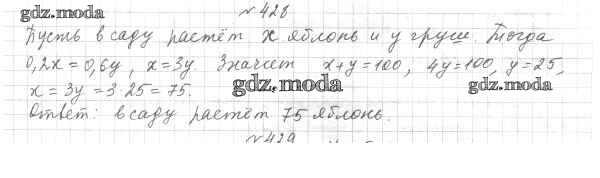 gdz.moda
№428
Пусть в саду растёт x яблонь и y груш. Тогда
0,2x = 0,6y, x = 3y. Значит x + y = 100, 4y = 100, y = 25,
x = 3y = 3·25 = 75. gdz.moda gdz.moda
Ответ: в саду растёт 75 яблонь.
№429